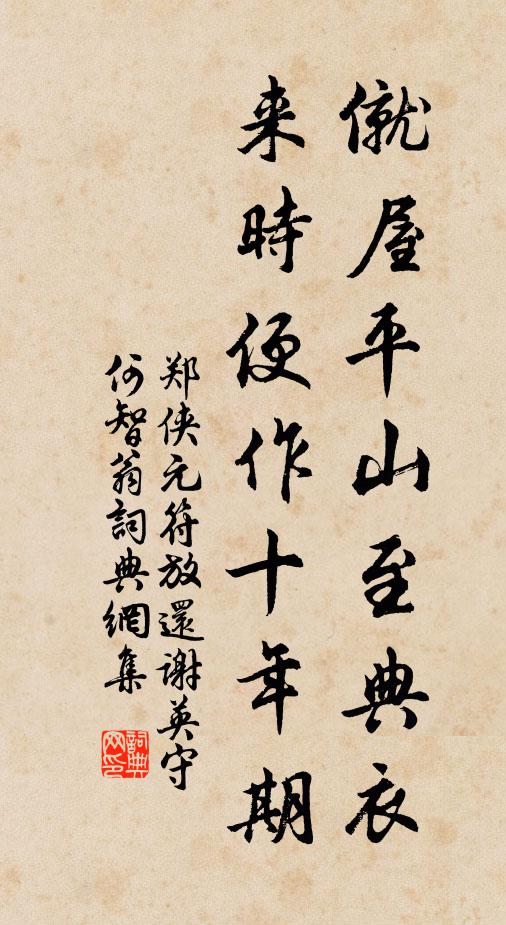 僦屋平山至典衣
来時便作十年期
郑侠元符放還谢英守
何智翁詞典網集
詞典网印